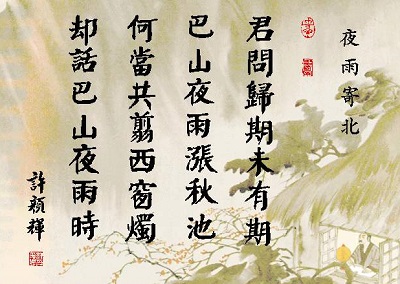 夜雨寄北
君問歸期未有期
巴山夜雨漲秋池
何當共翦西窗燭
却話巴山夜雨時
許穎輝